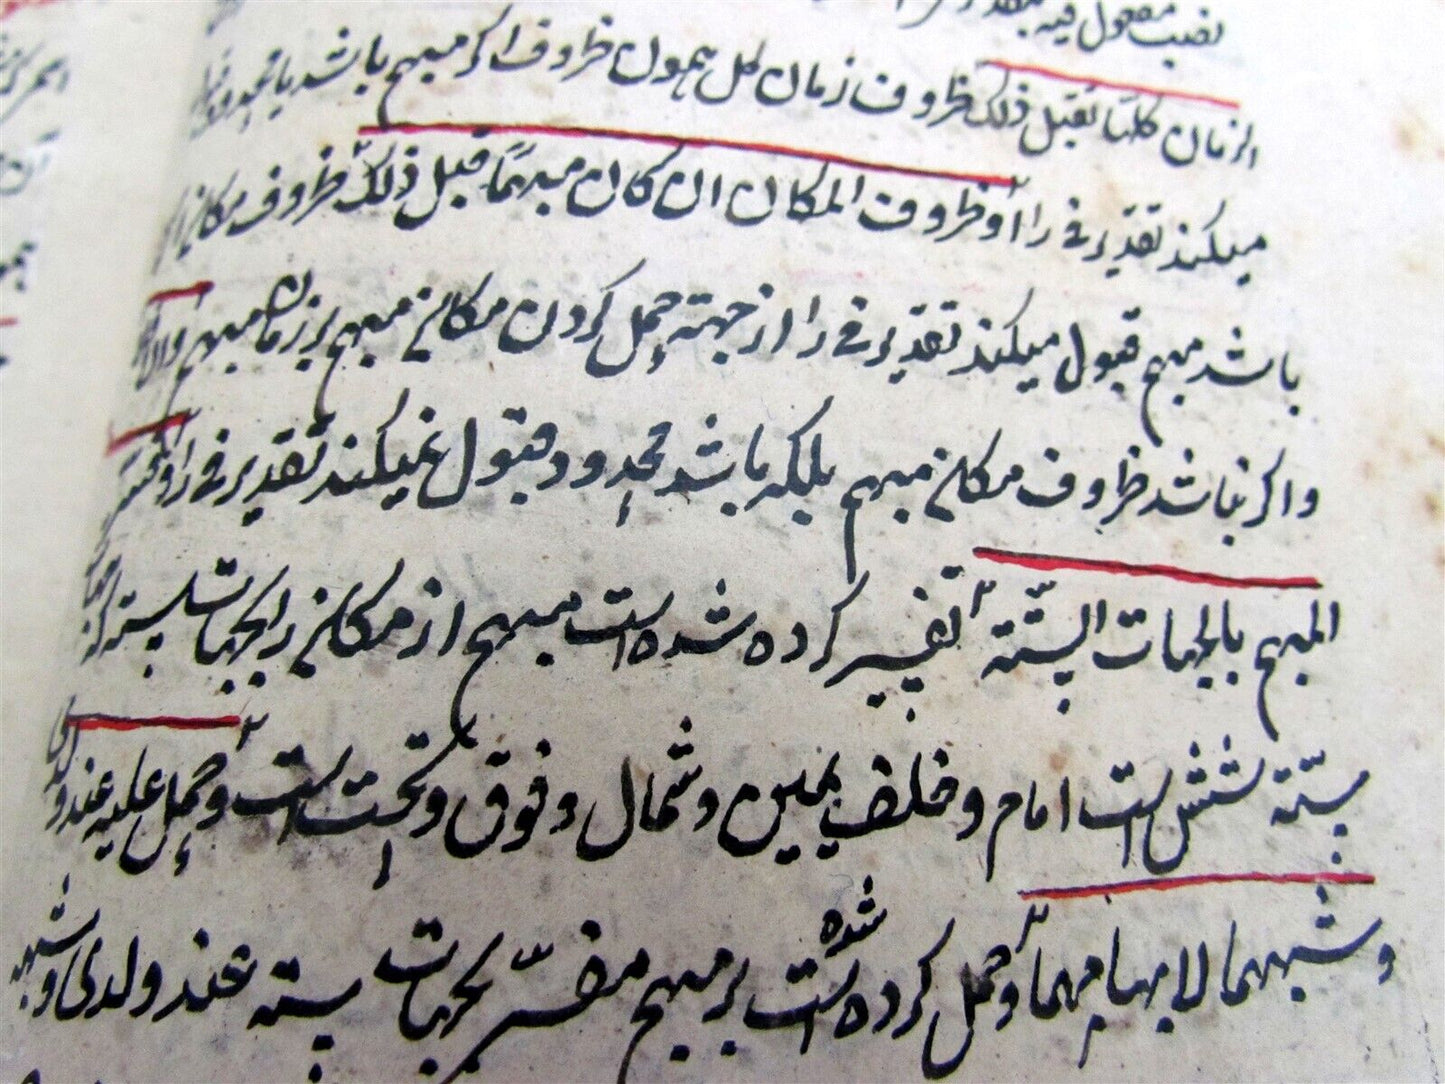 نصب مفعول فیه
الزمان کلها تقبل ذلک ظروف زمان کل همون ظروف اکر مبهم باشد یا محدود
میکند تقدیر فی را و ظروف المکان ان کان مبهمًا قبل ذلک ظروف مکان
باشد مبهم قبول میکند تقدیر فی را از جهته حمل کردن مکانی مبهم بر زمان مبهم والا
و اکر نباشد ظروف مکانی مبهم بلکه باشد محدود قبول نمیکند تقدیر فی را و فسر
المبهم بالجهات الستّة تفسیر کرده شده است مبهم از مکانی را بجهات سته که
ستّة شش است امام و خلف یمین و شمال و فوق و تحت است و حمل علیه عند ولدی
و شبههما لابهامهما و حمل کرده شده است بر مبهم مفسّر بجهات سته عند ولدی و شبه